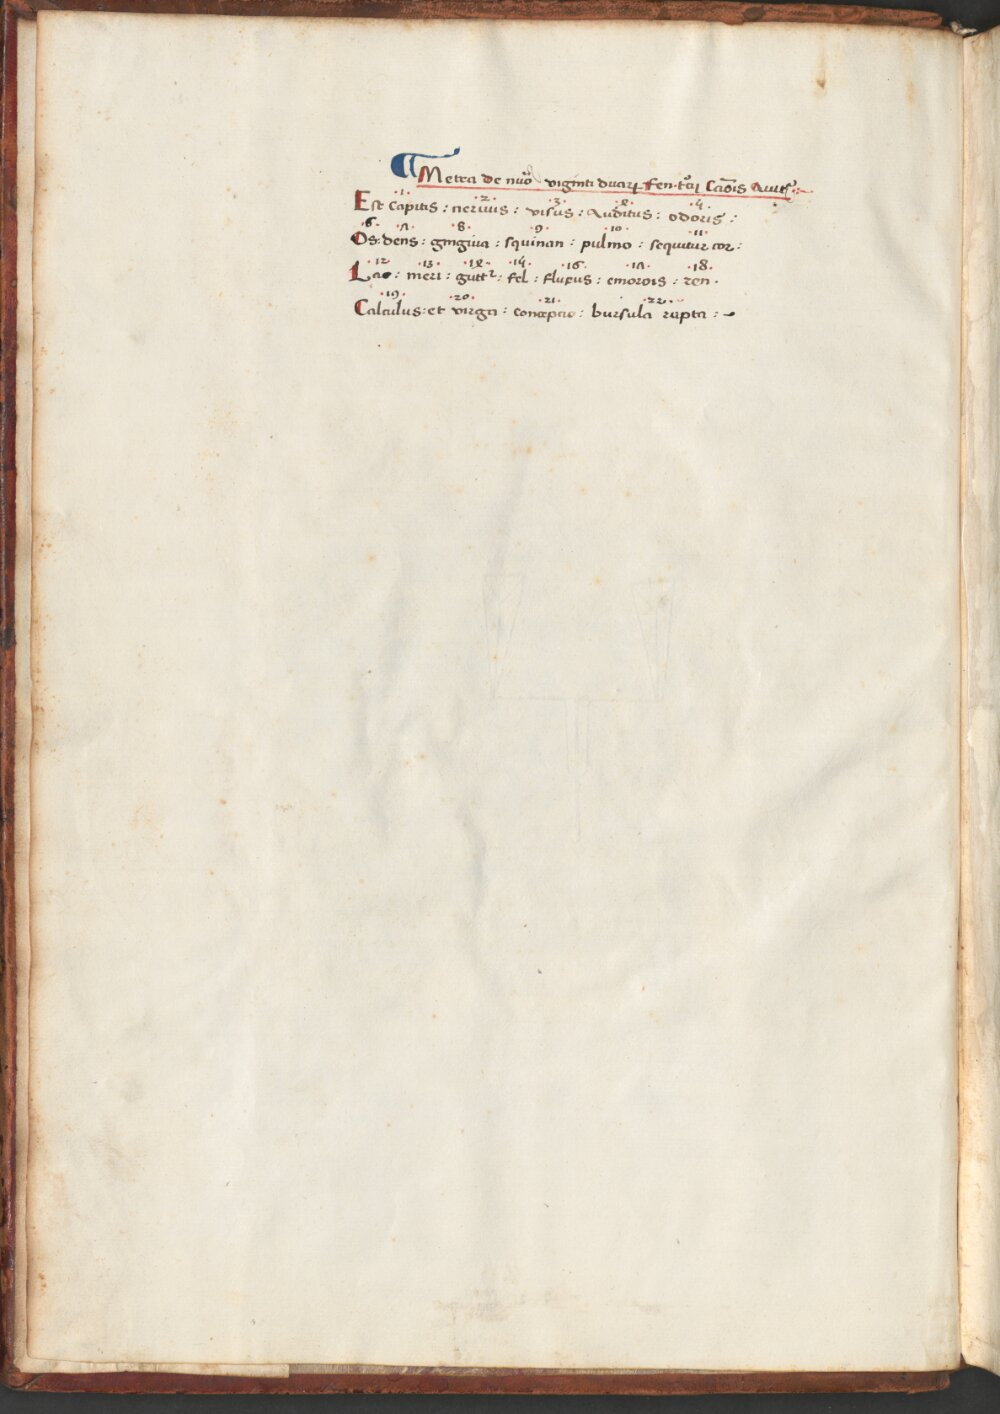 ¶ Metra de nūo viginti duaꝝ fen·
·1· ·2· ·3· ·ꝝ· ·4·
Est Capitis : neruus : visus : Auditus : odoris :
·6· ·ʌ· ·8· ·9· ·10· ·11·
Os : dens : gingiua : squinan : pulmo : sequitur cor :
·12 ·13· ·14· ·16· ·1ʌ· ·18·
Lac : meri : gutt : fel : fluxus : emorois : ren ·
·19· ·20· ·21· ·22·
Calculus : et virga : concepcio : bursula rupta : ~